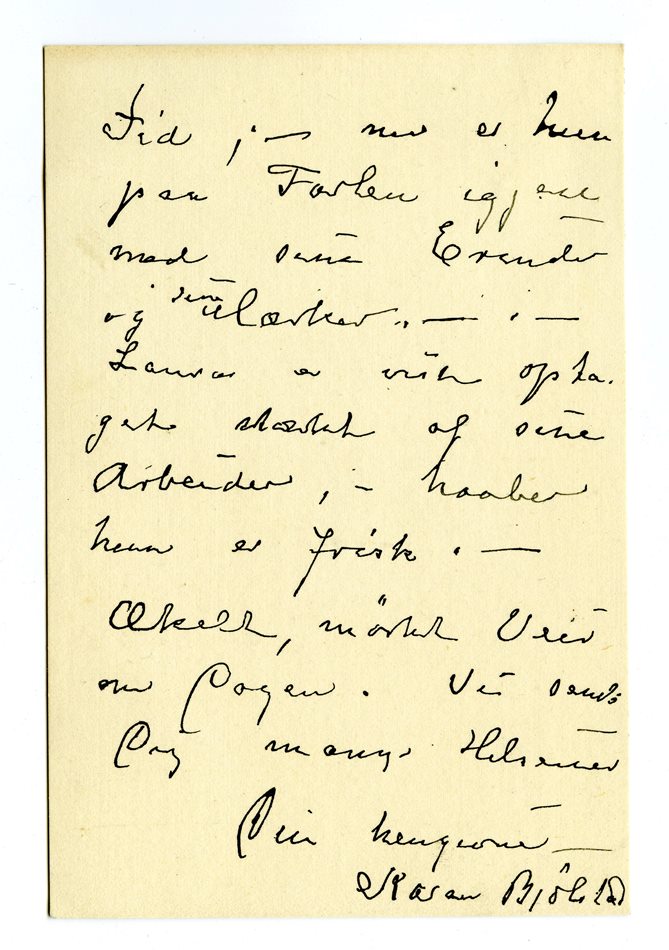 Tid ; — nu er hun
paa Farten igjen
med sine Erender
og sine Mærker. — . —
Laura er vist opta-
get stærkt af sine
Arbeider, ; – haaber
hun er frisk . —
Ækelt, mörkt Veir
om Dagen . Vi sender
Dig mange Hilsener
Din hengivne —
Karen Bjölstad